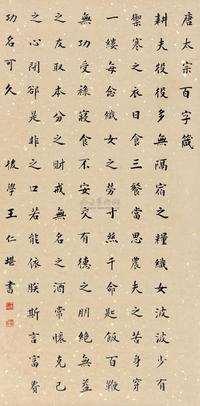 唐太宗百字箴
耕夫役役多無隔宿之糧織女波波少有
禦寒之衣日食三飡當思農夫之苦身穿
一縷每念織女之勞寸絲千命匙飯百鞭
無功受祿寢食不安交有德之朋絕無益
之友取本分之財戒無名之酒常懷克己
之心閉卻是非之口若能依朕斯言富貴
功名可久
後學王仁堪書